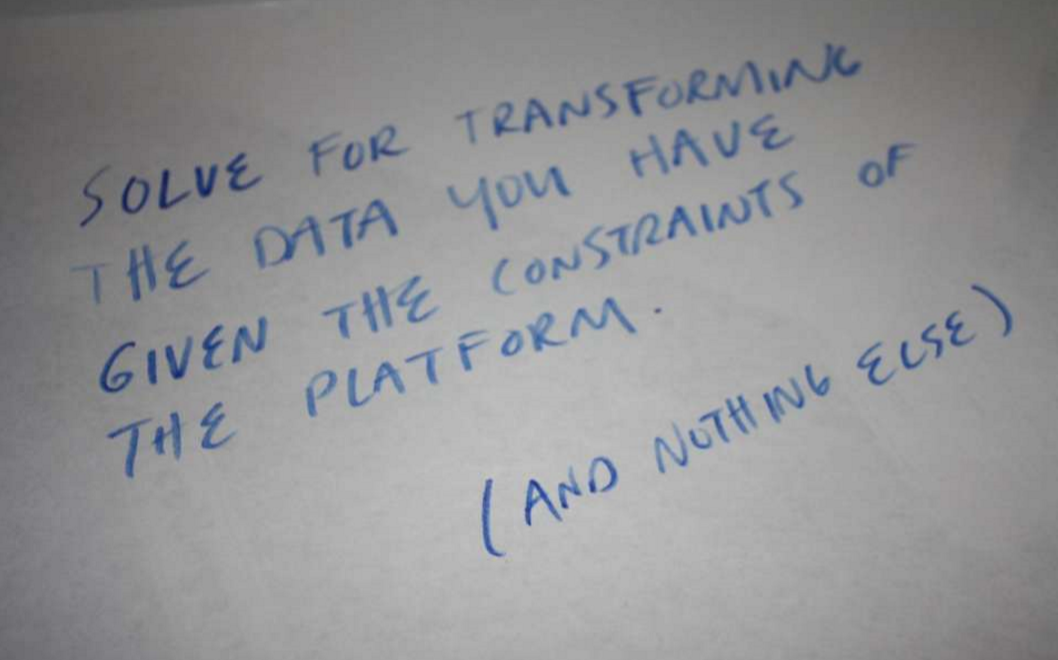 SOLVE FOR TRANSFORMING
THE DATA YOU HAVE
GIVEN THE CONSTRAINTS OF
THE PLATFORM.
(AND NOTHING ELSE)